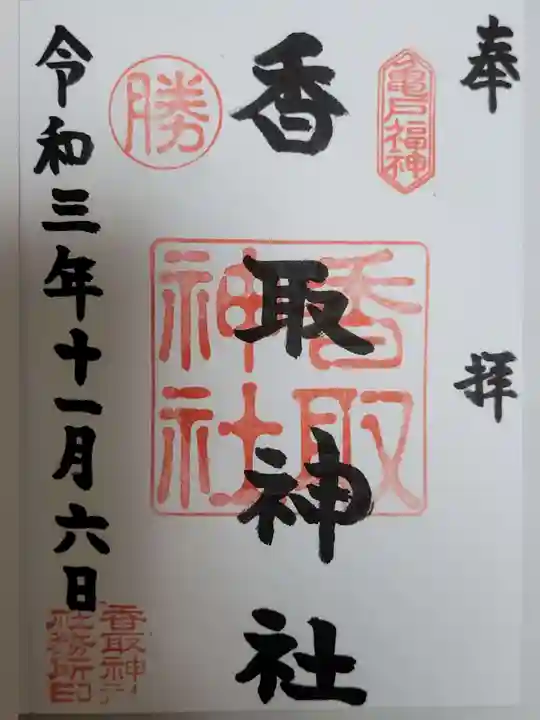 奉拝
亀戸福神
香取神社
香取
神社
勝
令和三年十一月六日
香取神社
社務所印